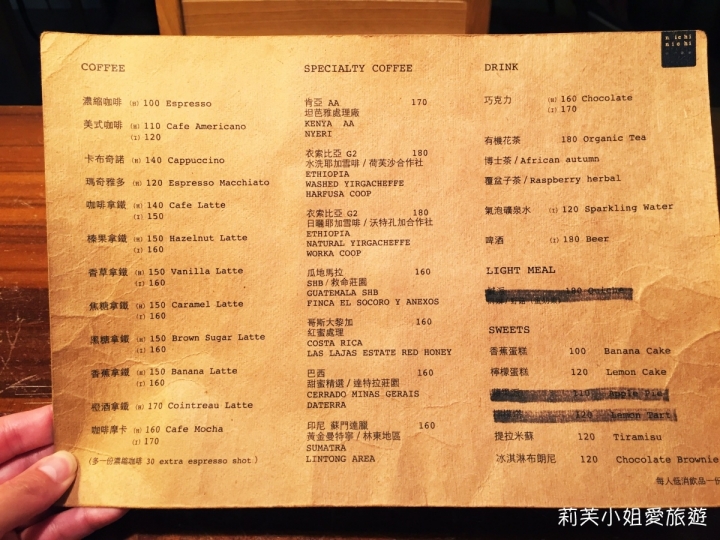 nichi
nichi
COFFEE
濃縮咖啡 (H) 100 Espresso
美式咖啡 (H) 110 Cafe Americano
(I) 120
卡布奇諾 (H) 140 Cappuccino
瑪奇雅多 (H) 120 Espresso Macchiato
咖啡拿鐵 (H) 140 Cafe Latte
(I) 150
榛果拿鐵 (H) 150 Hazelnut Latte
(I) 160
香草拿鐵 (H) 150 Vanilla Latte
(I) 160
焦糖拿鐵 (H) 150 Caramel Latte
(I) 160
黑糖拿鐵 (H) 150 Brown Sugar Latte
(I) 160
香蕉拿鐵 (H) 150 Banana Latte
(I) 160
橙酒拿鐵 (H) 170 Cointreau Latte
咖啡摩卡 (H) 160 Cafe Mocha
(I) 170
(多一份濃縮咖啡 30 extra espresso shot)
SPECIALTY COFFEE
肯亞 AA 170
坦芭雅處理廠
KENYA AA
NYERI
衣索比亞 G2 180
水洗耶加雪啡/荷芙沙合作社
ETHIOPIA
WASHED YIRGACHEFFE
HARFUSA COOP
衣索比亞 G2 180
日曬耶加雪啡/沃特孔加合作社
ETHIOPIA
NATURAL YIRGACHEFFE
WORKA COOP
瓜地馬拉 160
SHB/救命莊園
GUATEMALA SHB
FINCA EL SOCORO Y ANEXOS
哥斯大黎加 160
紅蜜處理
COSTA RICA
LAS LAJAS ESTATE RED HONEY
巴西 160
甜蜜精選/達特拉莊園
CERRADO MINAS GERAIS
DATERRA
印尼 蘇門達臘 160
黃金曼特寧/林東地區
SUMATRA
LINTONG AREA
DRINK
巧克力 (H) 160 Chocolate
(I) 170
有機花茶 180 Organic Tea
博士茶/African autumn
覆盆子茶/Raspberry herbal
氣泡礦泉水 (I) 120 Sparkling Water
啤酒 (I) 180 Beer
LIGHT MEAL
180 Quiche
SWEETS
香蕉蛋糕 100 Banana Cake
檸檬蛋糕 120 Lemon Cake
110 Apple Pie
120 Lemon Tart
提拉米蘇 120 Tiramisu
冰淇淋布朗尼 120 Chocolate Brownie
每人低消飲品一份
莉芙小姐愛旅遊